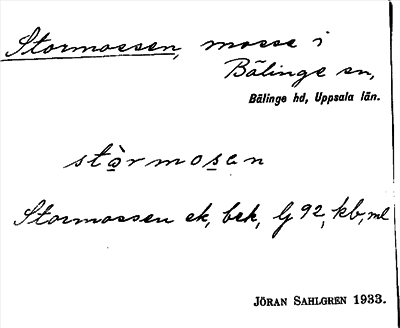 Stormossen, mosse i
Bälinge sn,
Bälinge hd, Uppsala län.
stòrmosan
Stormossen ek, bek, lj 92, kb, ml
JÖRAN SAHLGREN 1933.